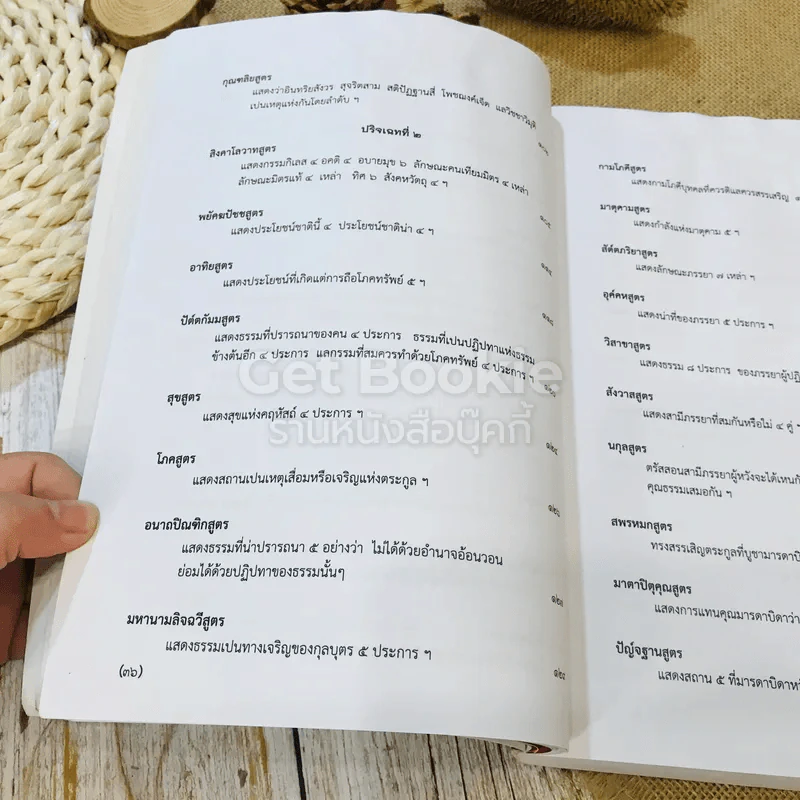 กุณฑลิยสูตร
แสดงว่าอินทริยสังวร สุจริตสาม สติปัฏฐานสี่ โพชฌงค์เจ็ด แลวิชชาวิมุติ
เปนเหตุแห่งกันโดยลำดับ ฯ
ปริจเฉทที่ ๒
สิงคาโลวาทสูตร
แสดงกรรมกิเลส ๔ อคติ ๔ อบายมุข ๖ ลักษณะคนเทียมมิตร ๔ เหล่า
ลักษณะมิตรแท้ ๔ เหล่า ทิศ ๖ สังคหวัตถุ ๔ ฯ
พยัคฆปัชชสูตร
แสดงประโยชน์ชาตินี้ ๔ ประโยชน์ชาติน่า ๔ ฯ
อาทิยสูตร
แสดงประโยชน์ที่เกิดแต่การถือโภคทรัพย์ ๕ ฯ
ปัตตกัมมสูตร
แสดงธรรมที่ปรารถนาของคน ๔ ประการ ธรรมที่เปนปฏิปทาแห่งธรรม
ข้างต้นอีก ๔ ประการ แลกรรมที่สมควรทำด้วยโภคทรัพย์ ๔ ประการ ฯ
สุขสูตร
แสดงสุขแห่งคฤหัสถ์ ๔ ประการ ฯ
๑๒๕
โภคสูตร
แสดงสถานเปนเหตุเสื่อมหรือเจริญแห่งตระกูล ฯ
๑๒๖
อนาถปิณฑิกสูตร
แสดงธรรมที่น่าปรารถนา ๕ อย่างว่า ไม่ได้ด้วยอำนาจอ้อนวอน
ย่อมได้ด้วยปฏิปทาของธรรมนั้นๆ
๑๒๗
มหานามลิจฉวีสูตร
แสดงธรรมเปนทางเจริญของกุลบุตร ๕ ประการ ฯ
๑๒๙
(๓๖)
กามโภคีสูตร
แสดงกามโภคีบุคคลที่ควรติแลควรสรรเสริญ
มาตุคามสูตร
แสดงกำลังแห่งมาตุคาม ๕ ฯ
สัตตภริยาสูตร
แสดงลักษณะภรรยา ๗ เหล่า ฯ
อุคคหสูตร
แสดงน่าที่ของภรรยา ๕ ประการ ฯ
วิสาขาสูตร
แสดงธรรม ๘ ประการ ของภรรยาผู้ปฏิ
สังวาสสูตร
แสดงสามีภรรยาที่สมกันหรือไม่ ๔ คู่ ฯ
นกุลสูตร
ตรัสสอนสามีภรรยาผู้หวังจะได้เหนกั
คุณธรรมเสมอกัน ฯ
สพรหมกสูตร
ทรงสรรเสิญตระกูลที่บูชามารดาบิ
มาตาปิตุคุณสูตร
แสดงการแทนคุณมารดาบิดาว่า
ปัญจฐานสูตร
แสดงสถาน ๕ ที่มารดาบิดาหวั
Get Bookie
ร้านหนังสือบุ๊คกี้